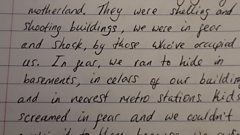 motherland. They were shelling and
shooting buildings, we were in fear
and shock, by those who've occupied
us. In fear, we ran to hide in
basements, in celars of our building
and in nearest metro stations. Kids
screamed in fear and we couldn't